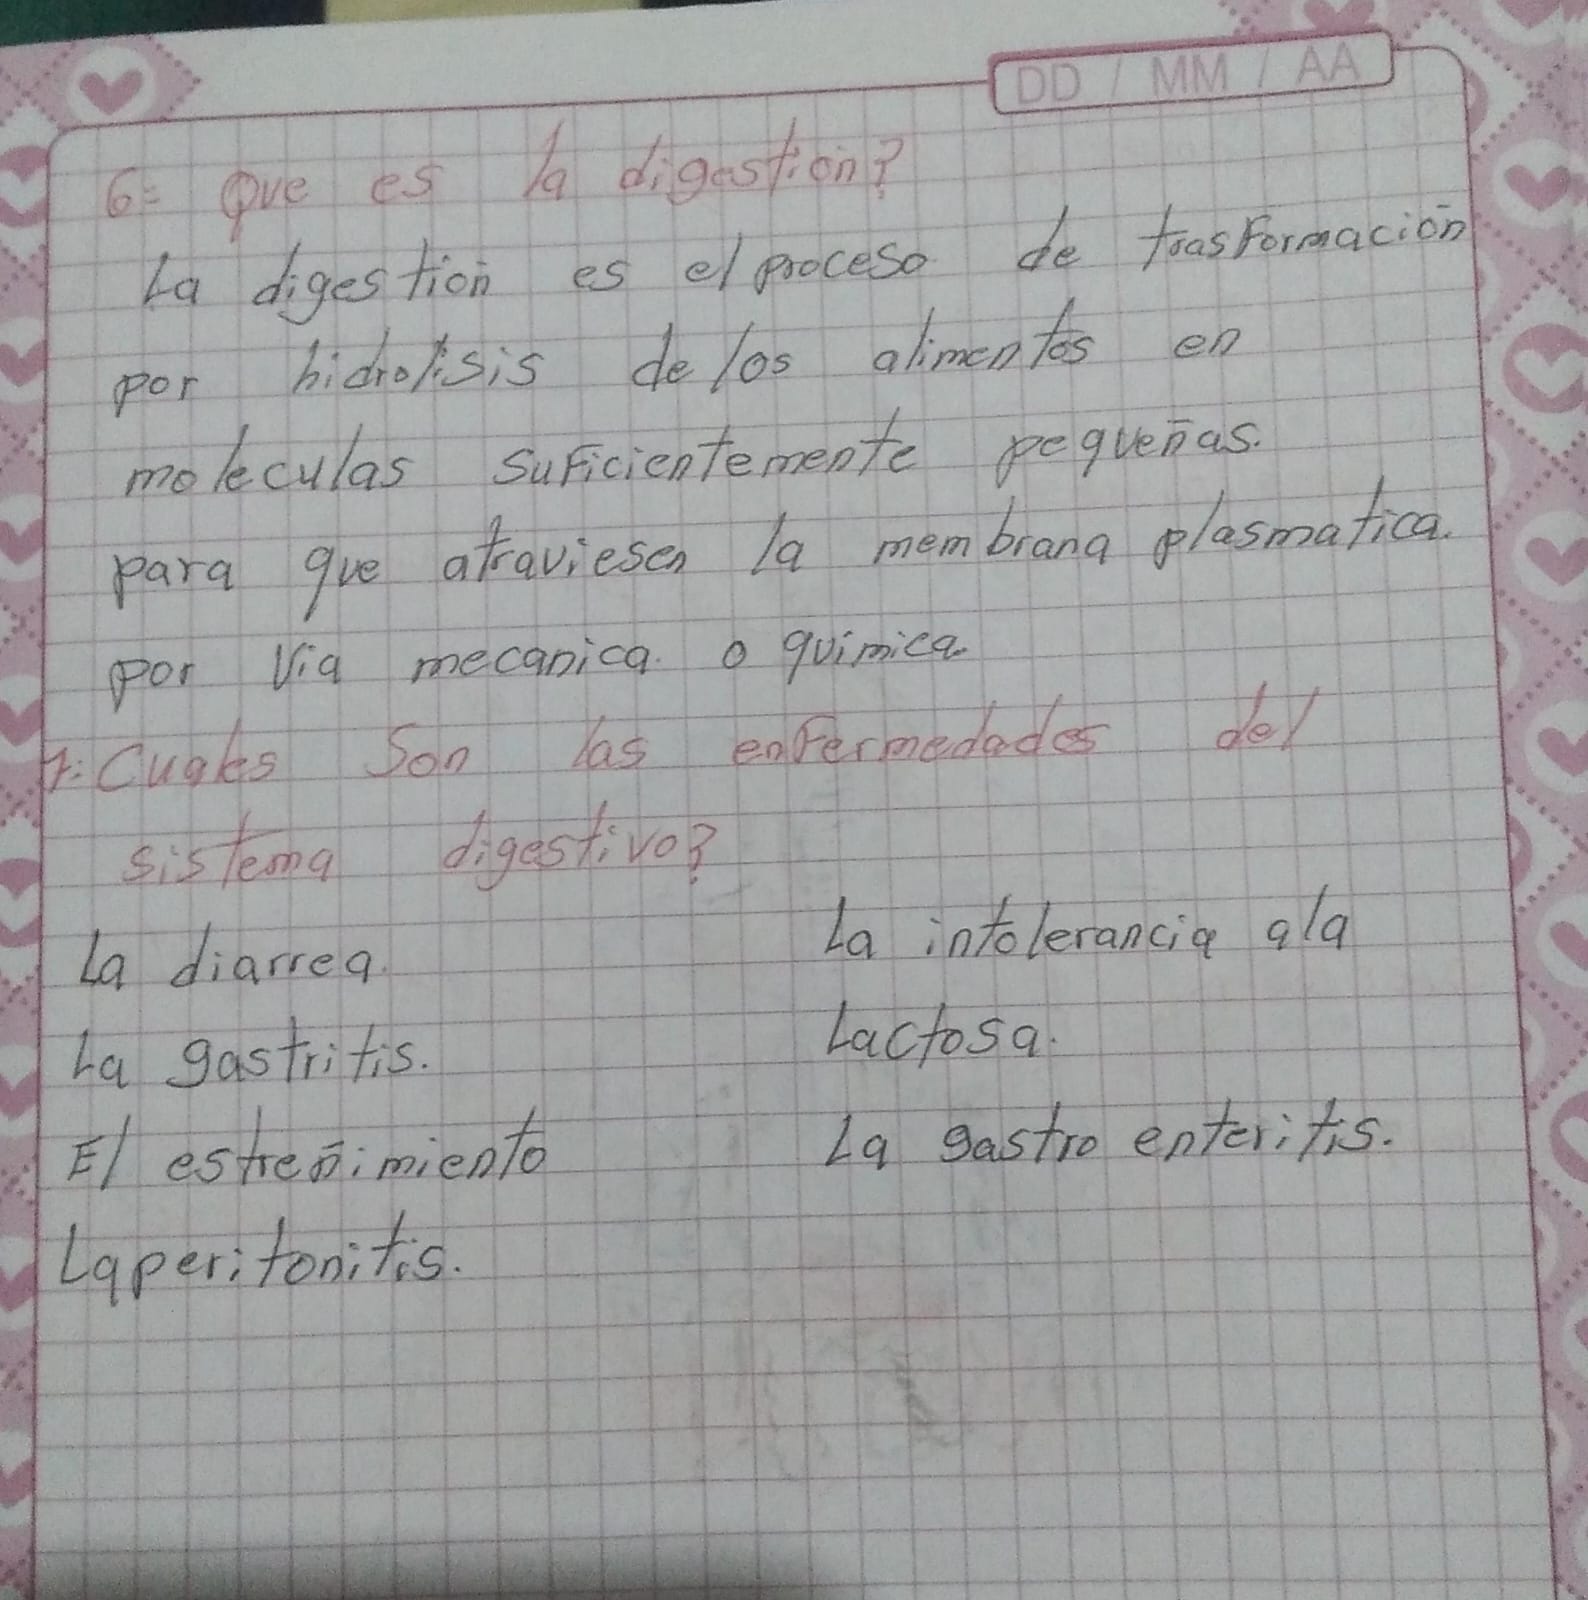 DD / MM / AA
6= Que es la digestion?
La digestión es el proceso de trasformación
por hidrolisis de los alimentos en
moleculas suficientemente pequeñas.
para que atraviesen la membrana plasmatica.
por via mecanica. o quimica.
7: Cuales son las enfermedades del
sistema digestivo?
La diarrea.
La gastritis.
El estreñimiento
La peritonitis.
La intolerancia a la
Lactosa.
La gastro enteritis.